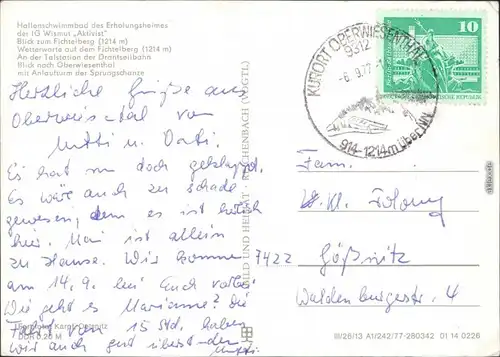 Hallenschwimmbad des Erholungsheimes
der IG Wismut „Aktivist"
Blick zum Fichtelberg (1214 m)
Wetterwarte auf dem Fichtelberg (1214 m)
An der Talstation der Drahtseilbahn
Blick nach Oberwiesenthal
mit Anlaufturm der Sprungschanze
Herzliche Grüße aus
Oberwies-tal von
Mutti u. Vati.
Es hat nun doch geklappt.
Es wäre auch zu schade
gewesen, denn es ist
hier. ist allein
zu Hause. Wir kommen
am 14.9. bei Euch vorbei
Wie geht es Marianne? Die
Fahrt 15 Std. haben
wir auch gut überst
Mutti
DDR 0,20 M
BILD UND HEIMAT REICHENBACH (VOGTL)
KURORT OBERWIESENTHAL
9312
-6.9.77
914-1214m über NN
10
Fam.
Kl.
7422
Gößnitz
Waldenburgerstr. 4
III/26/13 A1/242/77-280342 01 14 0226